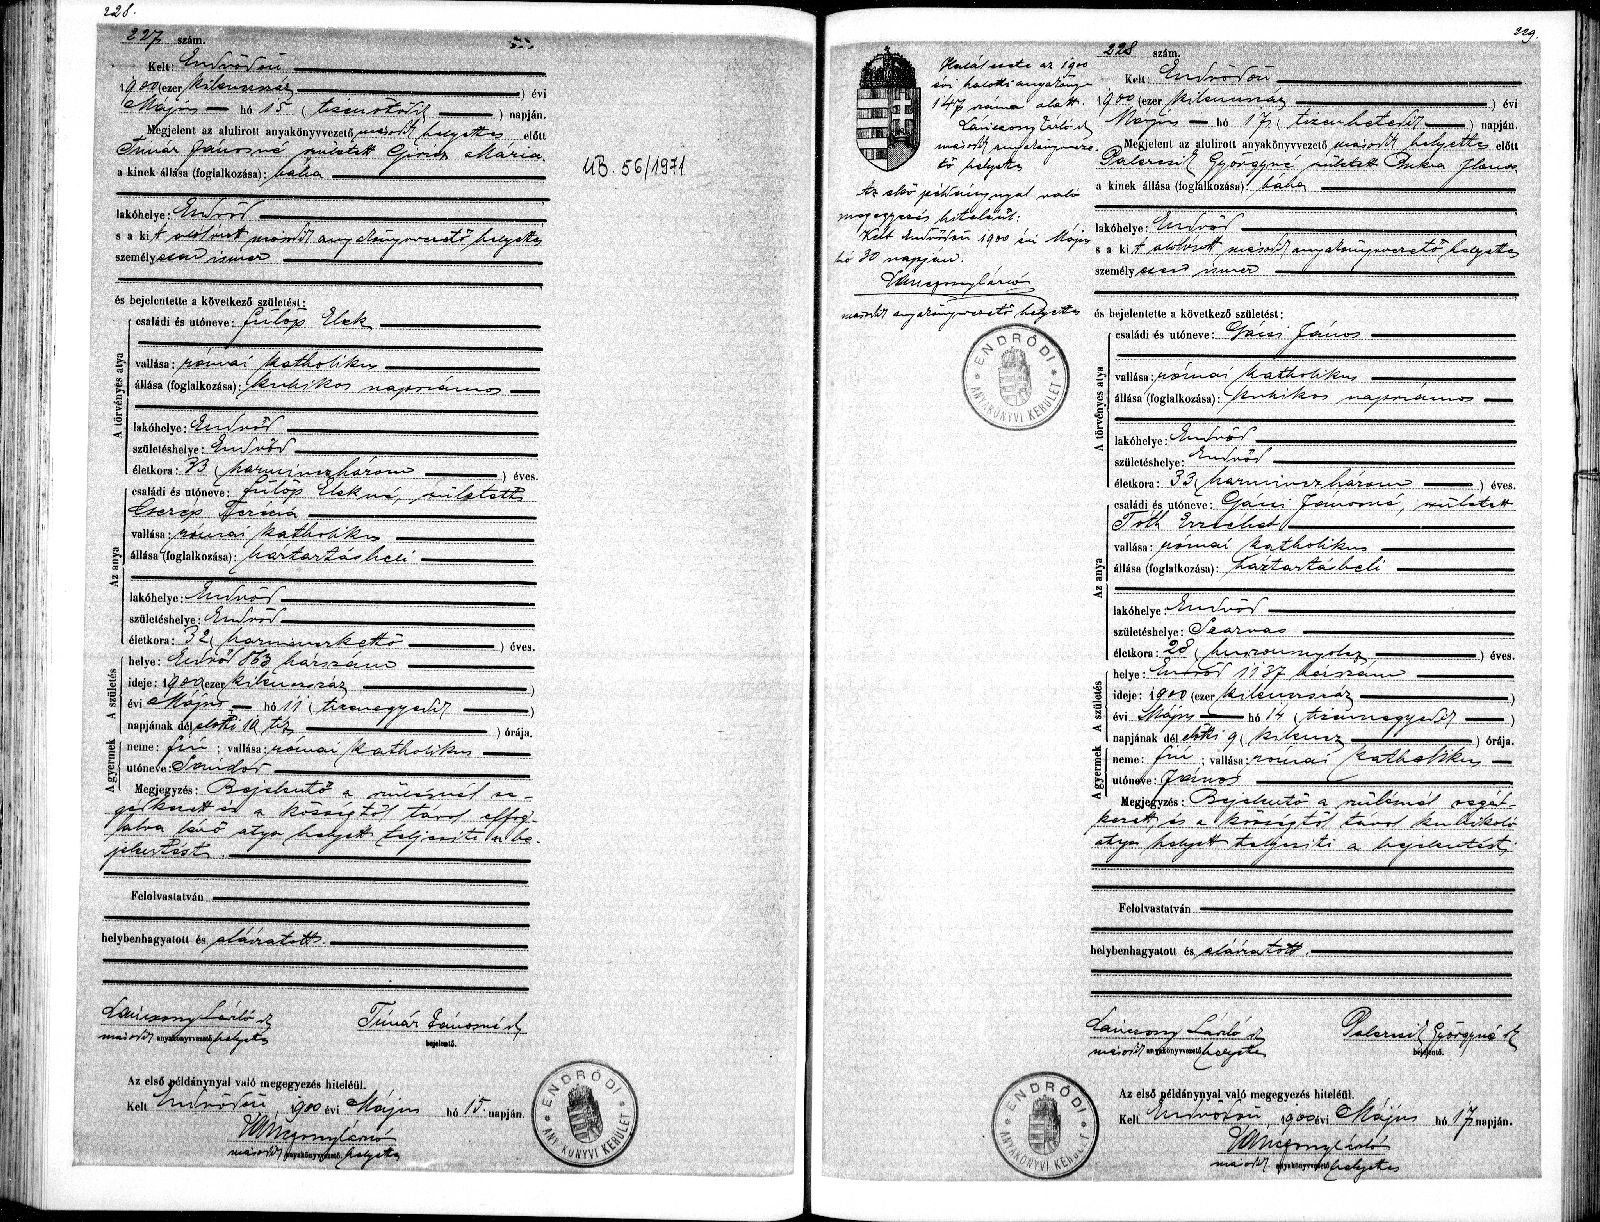 228.
227 szám.
Kelt: Endrődön
1900 (ezer kilenczszáz ) évi
Május hó 15 ( tizenötödik ) napján.
Megjelent az alulirott anyakönyvvezető másodh helyettes előtt
Timár Jánosné született Giricz Mária
a kinek állása (foglalkozása): bába
lakóhelye: Endrőd
s a kit alólirott másodh anyakönyvvezető helyettes
személyesen ismer
és bejelentette a következő születést:
A törvényes atya
családi és utóneve: Fülöp Elek
vallása: római katholikus
állása (foglalkozása): kubikos napszámos
lakóhelye: Endrőd
születéshelye: Endrőd
életkora: 33 ( harminczhárom ) éves.
Az anya
családi és utóneve: Fülöp Elekné, született
Cserép Terézia
vallása: római katholikus
állása (foglalkozása): háztartásbeli
lakóhelye: Endrőd
születéshelye: Endrőd
életkora: 32 ( harminczkettő ) éves.
A születés
helye: Endrőd 863 házszám
ideje: 1900 (ezer kilenczszáz )
évi Május hó 11 ( tizenegyedik )
napjának dél előtti 10 tiz ) órája.
A gyermek
neme: fiú ; vallása: római katholikus
utóneve: Sándor
Megjegyzés: Bejelentő a szülésnél se-
gédkezett és a községtől távol elfog-
lalva lévő atya helyett teljesiti a be-
jelentést.
Felolvastatván
helybenhagyatott és aláiratott.
Lánczony László sk Timár Jánosné sk
másodh anyakönyvvezető helyettes bejelentő.
Az első példánynyal való megegyezés hiteléül.
Kelt Endrődön, 1900 évi Május hó 15. napján.
másodh anyakönyvvezető helyettes
ENDRŐDI ANYAKÖNYVI KERÜLET
UB. 56/1971
229.
Halálesete az 1900
évi halotti anyakönyv
147 száma alatt.
Lánczony László sk
másodh anyakönyvveze-
tő helyettes
Az első példánynyal való
megegyezés hiteléül:
Kelt Endrődön 1900 évi Május
hó 30 napján.
másodh anyakönyvvezető helyettes
ENDRŐDI ANYAKÖNYVI KERÜLET
228 szám.
Kelt: Endrődön
1900 (ezer kilenczszáz ) évi
Május hó 17 ( tizenhetedik ) napján.
Megjelent az alulirott anyakönyvvezető másodh helyettes előtt
Palercsik Györgyné született Bukva Ilona
a kinek állása (foglalkozása): bába
lakóhelye: Endrőd
s a kit alólirott másodh anyakönyvvezető helyettes
személyesen ismer
és bejelentette a következő születést:
A törvényes atya
családi és utóneve: Gácsi János
vallása: római katholikus
állása (foglalkozása): kubikos napszámos
lakóhelye: Endrőd
születéshelye: Endrőd
életkora: 33 ( harminczhárom ) éves.
Az anya
családi és utóneve: Gácsi Jánosné, született
Tóth Erzsébet
vallása: római katholikus
állása (foglalkozása): háztartásbeli
lakóhelye: Endrőd
születéshelye: Szarvas
életkora: 28 ( huszonnyolcz ) éves.
A születés
helye: Endrőd 1137 házszám
ideje: 1900 (ezer kilenczszáz )
évi Május hó 14 ( tizennegyedik )
napjának dél előtti 9 ( kilencz ) órája.
A gyermek
neme: fiú ; vallása: római katholikus
utóneve: János
Megjegyzés: Bejelentő a szülésnél segéd-
kezett, és a községtől távol kubikoló
atya helyett teljesiti a bejelentést;
Felolvastatván
helybenhagyatott és aláiratott.
Lánczony László sk Palercsik Györgyné sk
másodh anyakönyvvezető helyettes bejelentő.
Az első példánynyal való megegyezés hiteléül.
Kelt Endrődön, 1900 évi Május hó 17 napján.
másodh anyakönyvvezető helyettes
ENDRŐDI ANYAKÖNYVI KERÜLET